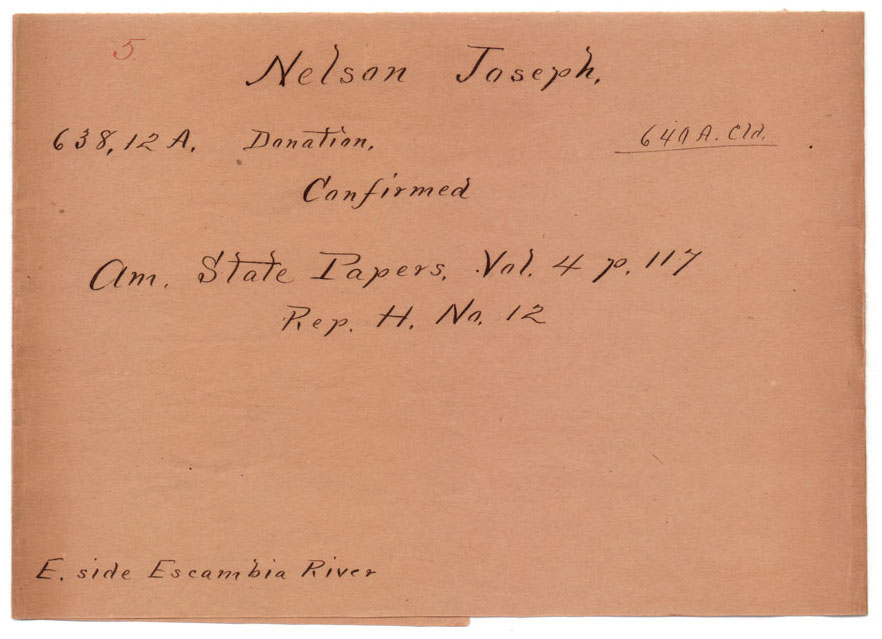 5
Nelson Joseph.
638,12 A. Donation. 640 A. Cld.
Confirmed
Am. State Papers. Vol. 4 p. 117
Rep. H. No. 12
E. side Escambia River